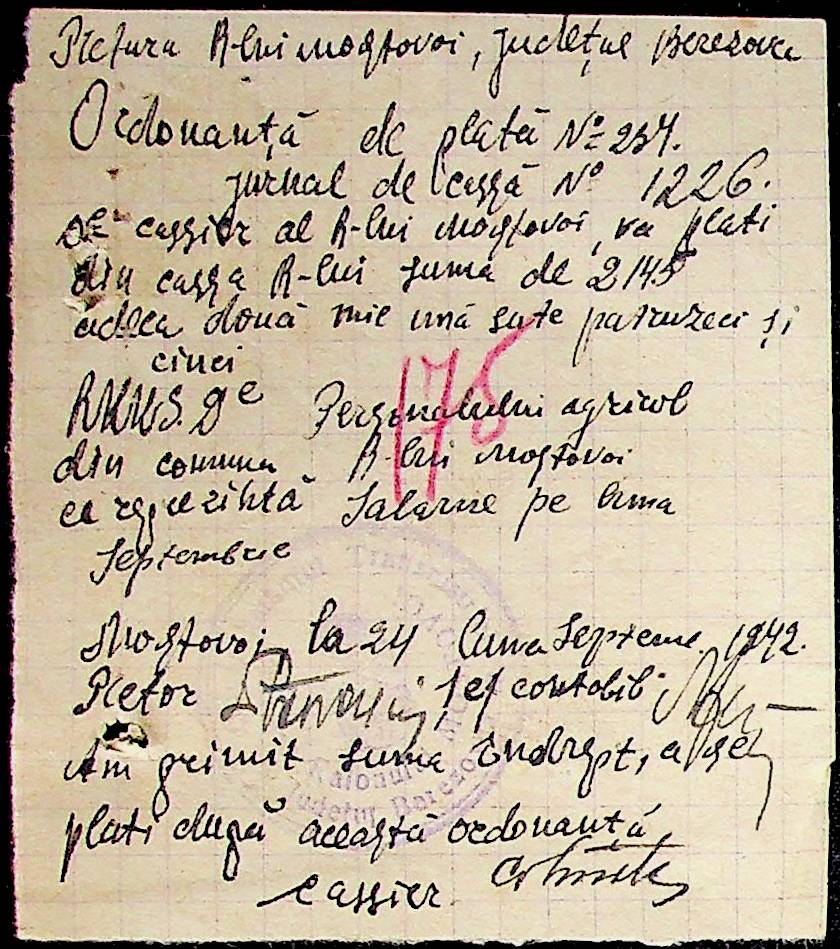 Pretura R-lui Mostovoi, județul Berezovca
Ordonanță de plată № 234.
jurnal de cassă № 1226.
cassier al R-lui Mostovoi, va plati
din cassa R-lui suma de 2145
adeca două mie una sute patruzeci și
cinci
RKKS. De Personalului agricol
din comuna R-lui Mostovoi
ce reprezihtă Salarue pe luna
Septembrie
178
Mostovoi la 24 luna Septeme. 1942.
Pretor șef contobil
Am primit suma a se
plati după această ordonanță
Cassier
Raionului
Județul Berezo